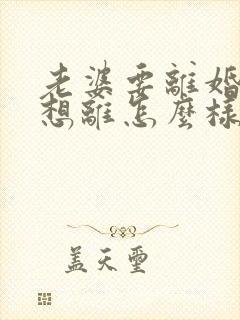 老婆要離婚
想離怎麼樣
蓋天璽